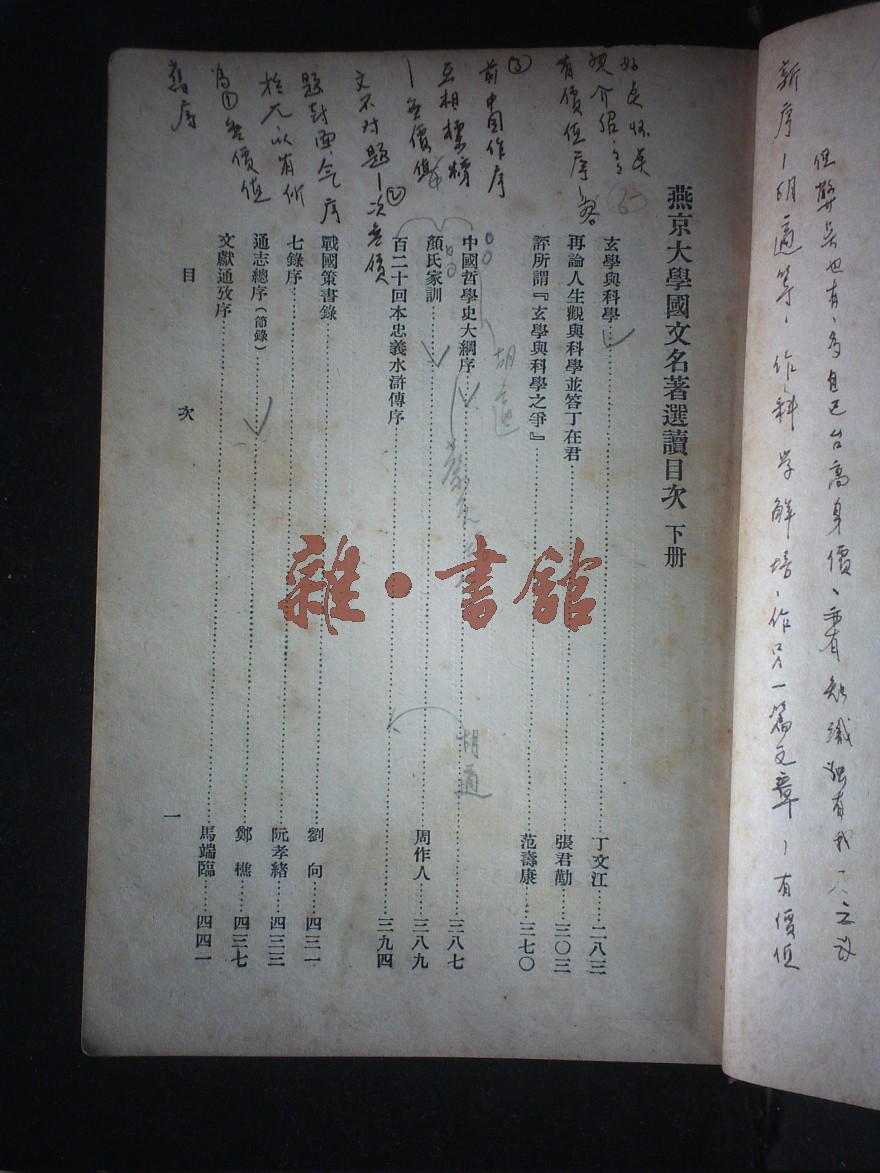 但弊矣也有、為自己台高身價、
新序—胡適等、作科學解
作只一篇文章—有價值
燕京大學國文名著選讀目次 下册
玄學與科學……丁文江……二八三
再論人生觀與科學並答丁在君……張君勱……三〇三
評所謂『玄學與科學之爭』……范壽康……三七〇
中國哲學史大綱序……三八七
顏氏家訓……周作人……三八九
百二十回本忠義水滸傳序……三九四
戰國策書錄……劉 向……四三一
七錄序……阮孝緒……四三三
通志總序(節錄)……鄭 樵……四三七
文獻通攷序……馬端臨……四四一
目 次
一
有價值序
③
前中国作序
互相標榜
—無價值
文不对題—次無價
②
題封面
為①無價值
舊序
胡適
胡適
雜·書館